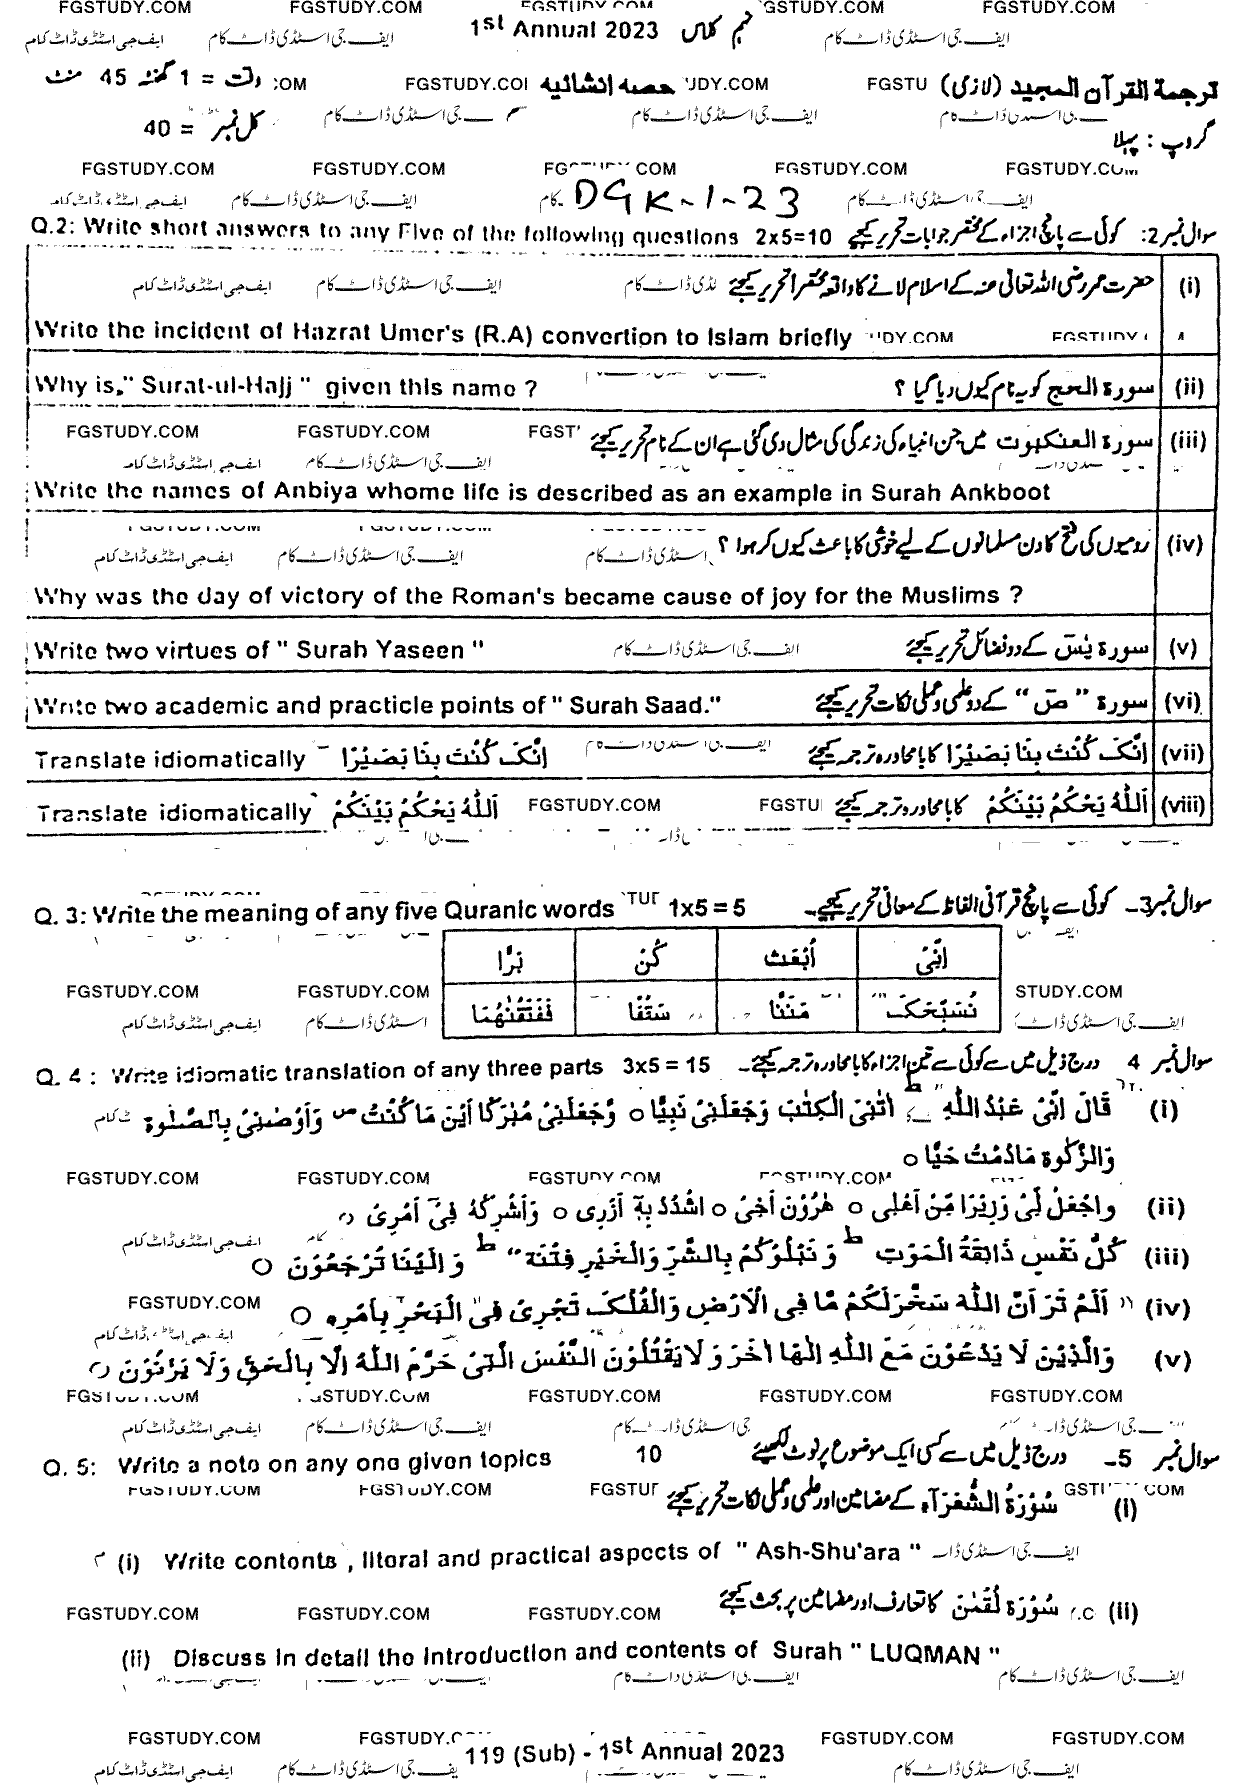 1st Annual 2023 نہم کلاس
ترجمة القرآن المجید (لازمی) حصہ انشائیہ وقت = 1 گھنٹہ 45 منٹ
گروپ : پہلا کل نمبر = 40
DGK-1-23
Q.2: Write short answers to any Five of the following questions 2x5=10 سوال نمبر 2: کوئی سے پانچ اجزاء کے مختصر جوابات تحریر کیجئے
(i) حضرت عمر رضی اللہ تعالی عنہ کے اسلام لانے کا واقعہ مختصراً تحریر کیجئے
Write the incident of Hazrat Umer's (R.A) convertion to Islam briefly
Why is," Surat-ul-Hajj " given this name ? سورة الحج کو یہ نام کیوں دیا گیا ؟ (ii)
(iii) سورة العنکبوت میں جن انبیاء کی زندگی کی مثال دی گئی ہے ان کے نام تحریر کیجئے
Write the names of Anbiya whome life is described as an example in Surah Ankboot
(iv) رومیوں کی فتح کا دن مسلمانوں کے لیے خوشی کا باعث کیوں کر ہوا ؟
Why was the day of victory of the Roman's became cause of joy for the Muslims ?
Write two virtues of " Surah Yaseen " سورة یٰسٓ کے دو فضائل تحریر کیجئے (v)
Write two academic and practicle points of " Surah Saad." سورة " صٓ " کے دو علمی و عملی نکات تحریر کیجئے (vi)
Translate idiomatically اِنَّکَ کُنْتَ بِنَا بَصِیْرًا اِنَّکَ کُنْتَ بِنَا بَصِیْرًا کا بامحاورہ ترجمہ کیجئے (vii)
Translate idiomatically اَللّٰہُ یَحْکُمُ بَیْنَکُمْ اَللّٰہُ یَحْکُمُ بَیْنَکُمْ کا بامحاورہ ترجمہ کیجئے (viii)
Q. 3: Write the meaning of any five Quranic words 1x5 = 5 سوال نمبر 3۔ کوئی سے پانچ قرآنی الفاظ کے معانی تحریر کیجئے۔
اِنِّیْ اُبْعَثُ کُنْ بَرًّا
نُسَبِّحَکَ مَنَنَّا سَقْفًا فَفَتَقْنٰھُمَا
Q. 4 : Write idiomatic translation of any three parts 3x5 = 15 سوال نمبر 4 درج ذیل میں سے کوئی سے تین اجزاء کا بامحاورہ ترجمہ کیجئے۔
(i) قَالَ اِنِّیْ عَبْدُ اللّٰہِ اٰتٰنِیَ الْکِتٰبَ وَجَعَلَنِیْ نَبِیًّا o وَّجَعَلَنِیْ مُبٰرَکًا اَیْنَ مَا کُنْتُ ص وَاَوْصٰنِیْ بِالصَّلٰوۃِ
وَالزَّکٰوۃِ مَادُمْتُ حَیًّا o
(ii) وَاجْعَلْ لِّیْ وَزِیْرًا مِّنْ اَھْلِی o ھٰرُوْنَ اَخِی o اشْدُدْ بِہٖٓ اَزْرِی o وَاَشْرِکْہُ فِیْٓ اَمْرِی o
(iii) کُلُّ نَفْسٍ ذَآئِقَۃُ الْمَوْتِ ط وَ نَبْلُوْکُمْ بِالشَّرِّ وَالْخَیْرِ فِتْنَۃً ط وَ اِلَیْنَا تُرْجَعُوْنَ o
(iv) اَلَمْ تَرَ اَنَّ اللّٰہَ سَخَّرَلَکُمْ مَّا فِی الْاَرْضِ وَالْفُلْکَ تَجْرِیْ فِی الْبَحْرِ بِاَمْرِہٖ o
(v) وَالَّذِیْنَ لَا یَدْعُوْنَ مَعَ اللّٰہِ اِلٰھًا اٰخَرَ وَلَا یَقْتُلُوْنَ النَّفْسَ الَّتِیْ حَرَّمَ اللّٰہُ اِلَّا بِالْحَقِّ وَلَا یَزْنُوْنَ o
Q. 5: Write a note on any one given topics 10 سوال نمبر 5۔ درج ذیل میں سے کسی ایک موضوع پر نوٹ لکھیئے
(i) سُوْرَۃُ الشُّعَرَآء کے مضامین اور علمی و عملی نکات تحریر کیجئے
(i) Write contents , literal and practical aspects of " Ash-Shu'ara "
(ii) سُوْرَۃُ لُقْمٰن کا تعارف اور مضامین پر بحث کیجئے
(ii) Discuss in detail the introduction and contents of Surah " LUQMAN "
119 (Sub) - 1st Annual 2023
FGSTUDY.COM
ایف جی اسٹڈی ڈاٹ کام